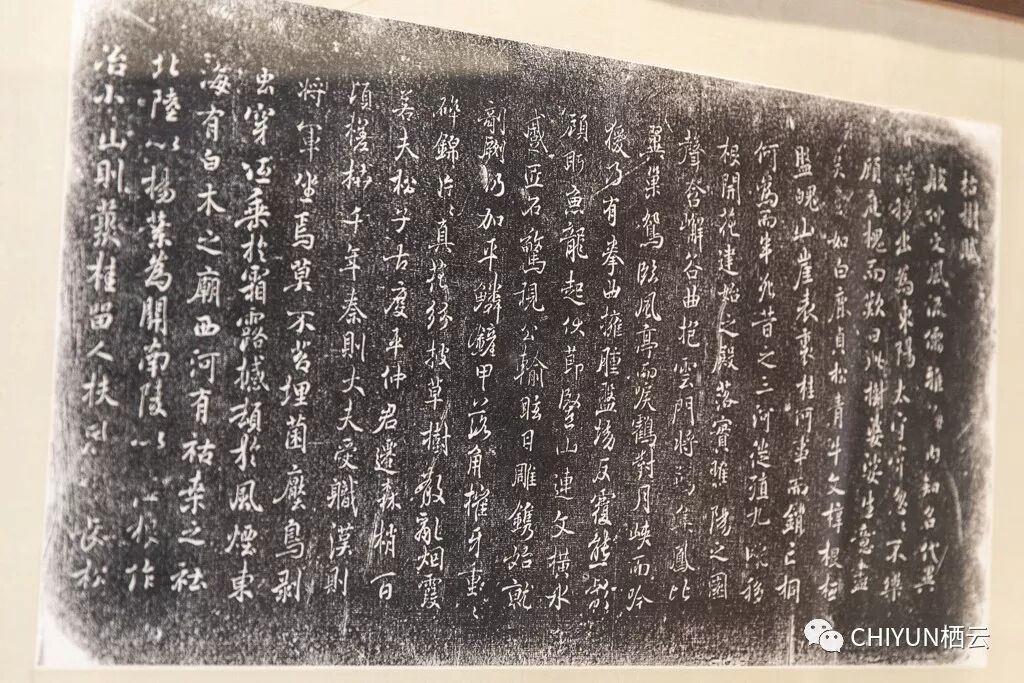 枯樹賦
殷仲文風流儒雅海內知名代異
時移出為東陽太守常忽〻不樂
顧庭槐而歎曰此樹婆娑生意盡
矣至如白鹿貞松青牛文梓根柢
盤魄山崖表裏桂何事而銷亡桐
何為而半死昔之三河徙殖九畹移
根開花建始之殿落實睢陽之園
聲含嶰谷曲抱雲門將雛集鳳比
翼巢鴛臨風亭而唳鶴對月峽而吟
猨乃有拳曲擁腫盤坳反覆熊彪
顧眄魚龍起伏節豎山連文橫水
蹙匠石驚視公輸眩目雕鐫始就
剞劂仍加平鱗鏟甲落角摧牙重〻
碎錦片〻真花紛披草樹散亂烟霞
若夫松子古度平仲君遷森梢百
頃槎枿千年秦則大夫受職漢則
將軍坐焉莫不苔埋菌壓鳥剥
虫穿低垂於霜露撼頓於風煙東
海有白木之廟西河有枯桑之社
北陸以楊葉為關南陵以梅根作
冶小山則叢桂留人扶風長松
CHIYUN栖云